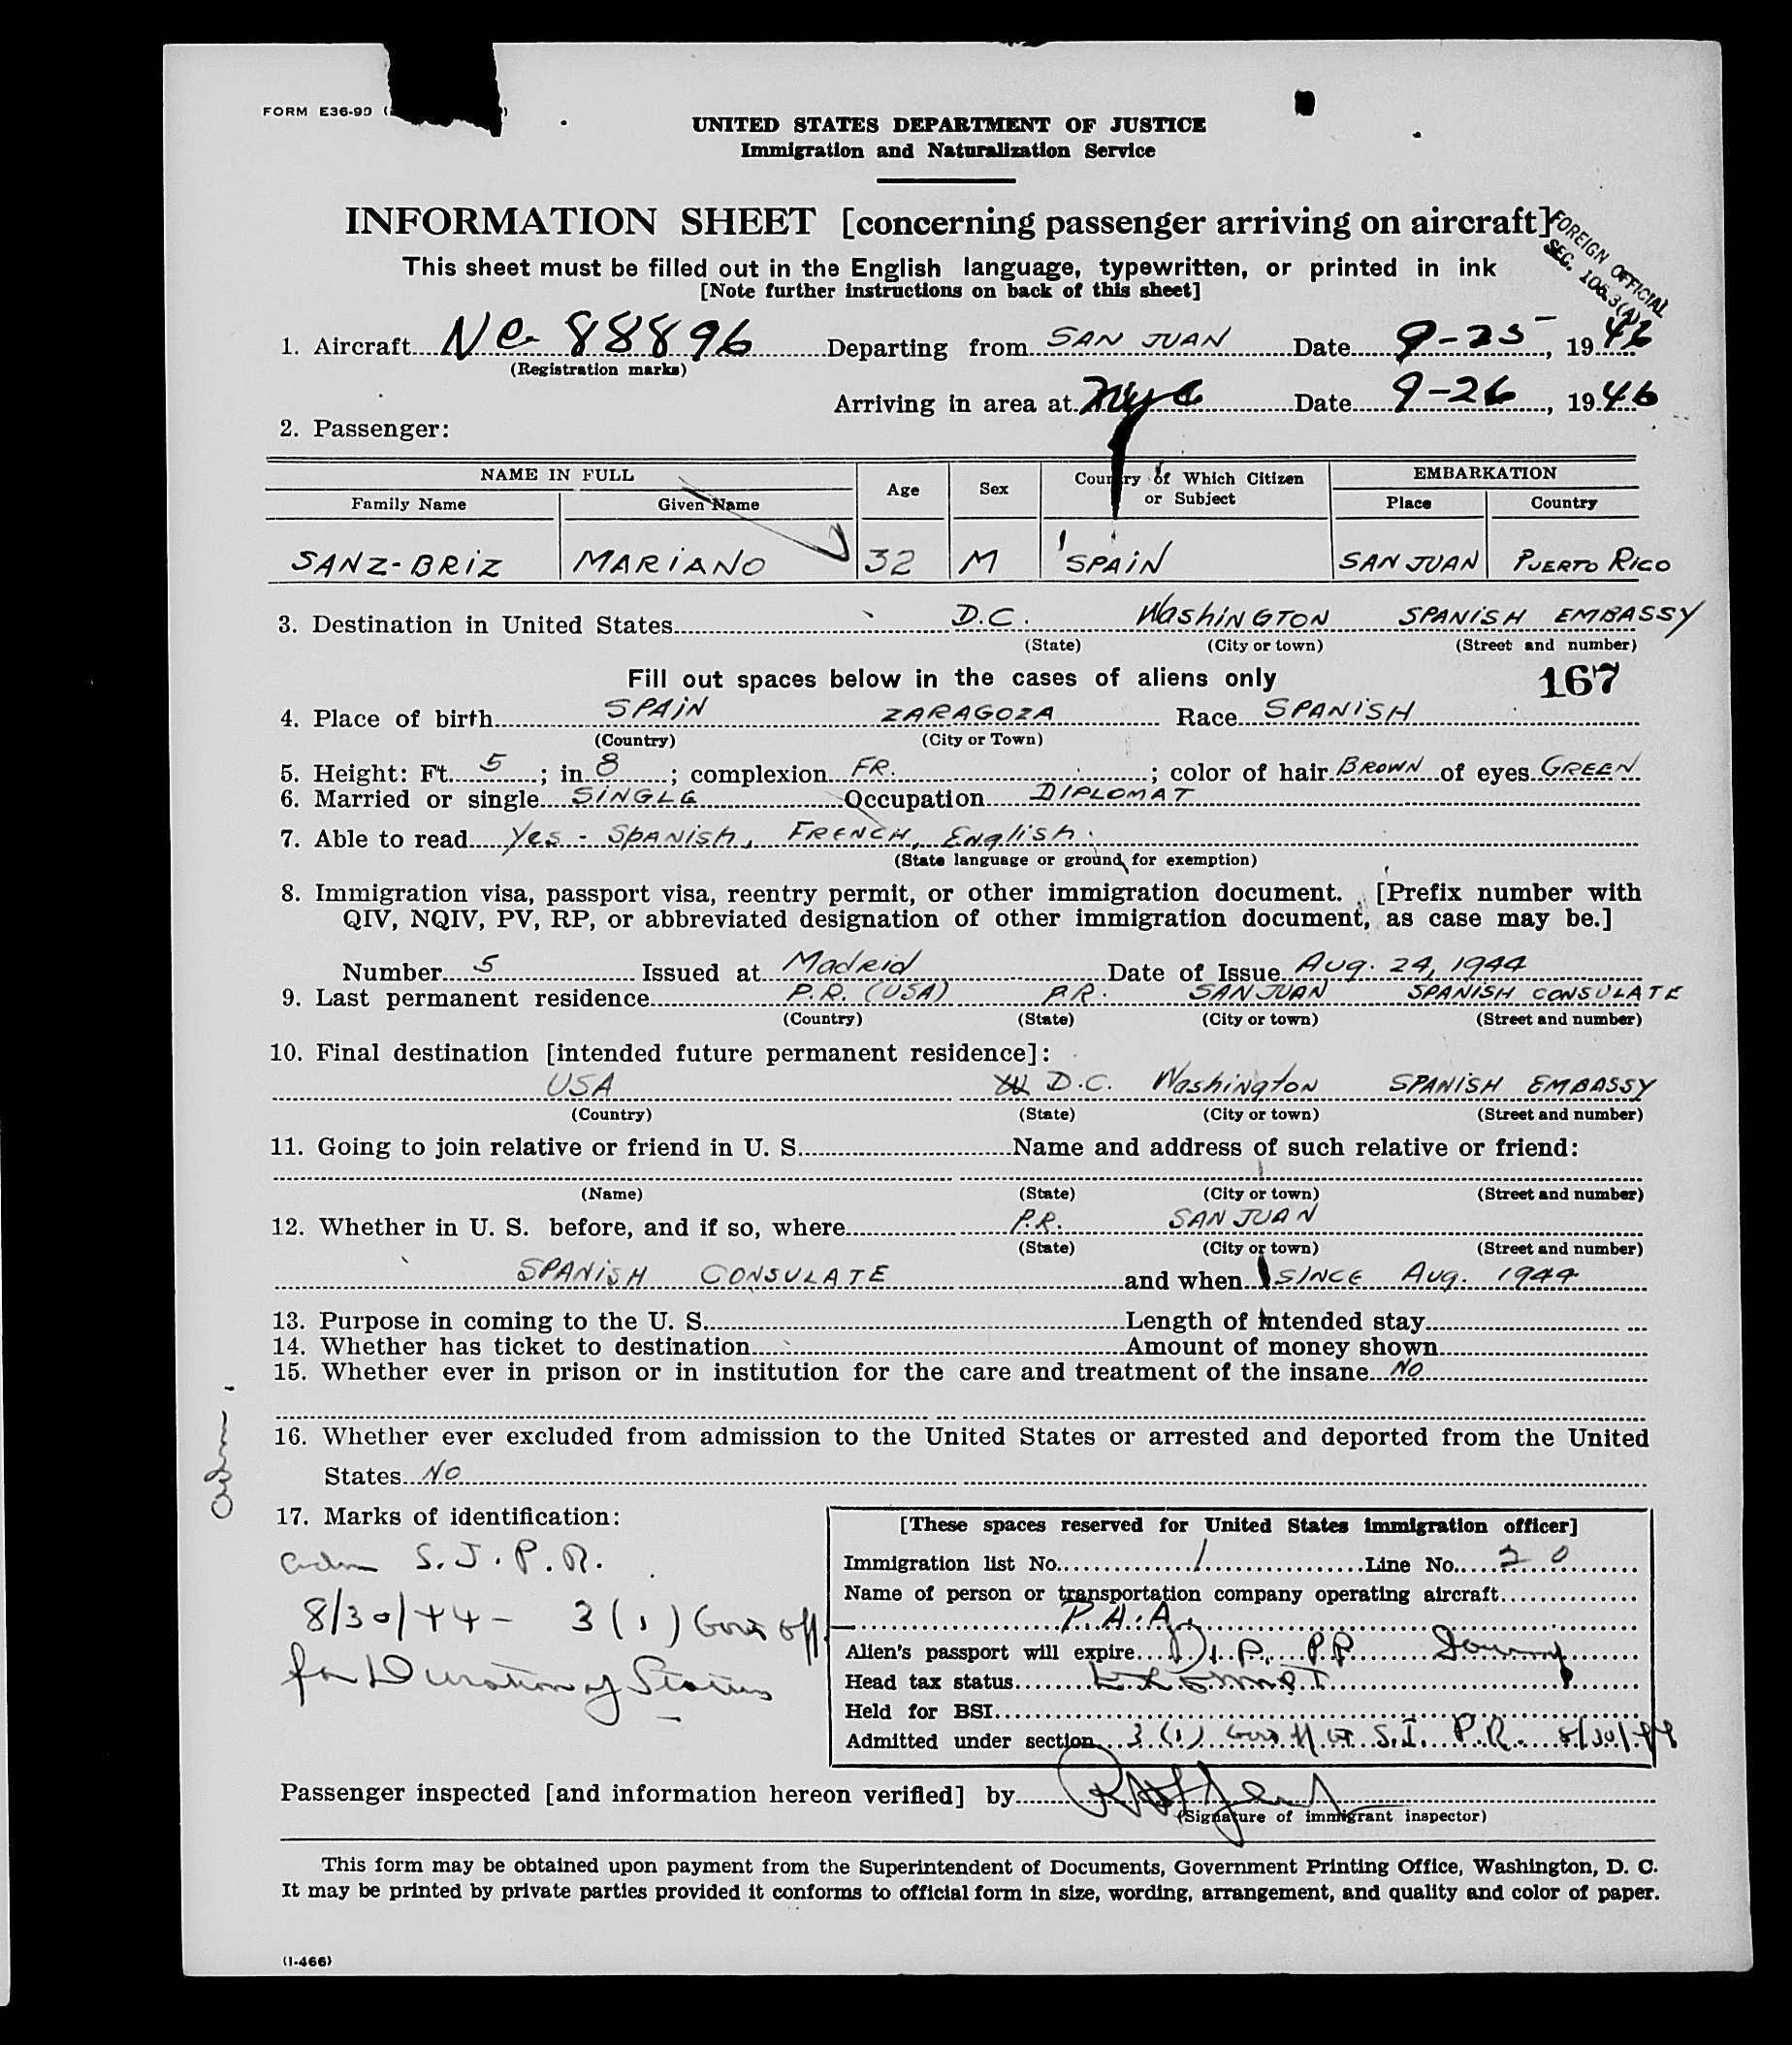 FORM E36-90
UNITED STATES DEPARTMENT OF JUSTICE
Immigration and Naturalization Service
INFORMATION SHEET [concerning passenger arriving on aircraft]
FOREIGN OFFICIAL
SEC. 106.3(A)
This sheet must be filled out in the English language, typewritten, or printed in ink
[Note further instructions on back of this sheet]
1. Aircraft NC 88896 Departing from SAN JUAN Date 9-25-, 1946
(Registration marks)
Arriving in area at NYC Date 9-26, 1946
2. Passenger:
NAME IN FULL Age Sex Country of Which Citizen or Subject EMBARKATION
Family Name Given Name Place Country
SANZ-BRIZ MARIANO 32 M SPAIN SAN JUAN PUERTO RICO
3. Destination in United States D.C. Washington SPANISH EMBASSY
(State) (City or town) (Street and number)
Fill out spaces below in the cases of aliens only 167
4. Place of birth SPAIN ZARAGOZA Race SPANISH
(Country) (City or Town)
5. Height: Ft. 5; in 8; complexion FR.; color of hair BROWN of eyes GREEN
6. Married or single SINGLE Occupation DIPLOMAT
7. Able to read Yes - Spanish, FRENCH, English.
(State language or ground for exemption)
8. Immigration visa, passport visa, reentry permit, or other immigration document. [Prefix number with
QIV, NQIV, PV, RP, or abbreviated designation of other immigration document, as case may be.]
Number 5 Issued at Madrid Date of Issue Aug. 24, 1944
9. Last permanent residence P.R. (USA) P.R. SAN JUAN SPANISH CONSULATE
(Country) (State) (City or town) (Street and number)
10. Final destination [intended future permanent residence]:
USA D.C. Washington SPANISH EMBASSY
(Country) (State) (City or town) (Street and number)
11. Going to join relative or friend in U. S. Name and address of such relative or friend:
(Name) (State) (City or town) (Street and number)
12. Whether in U. S. before, and if so, where P.R. SAN JUAN
(State) (City or town) (Street and number)
SPANISH CONSULATE and when SINCE Aug. 1944
13. Purpose in coming to the U. S. Length of intended stay
14. Whether has ticket to destination Amount of money shown
15. Whether ever in prison or in institution for the care and treatment of the insane NO
16. Whether ever excluded from admission to the United States or arrested and deported from the United
States NO
17. Marks of identification:
adm S.J.P.R.
8/30/44 - 3(1) Gov't off.
for Duration of Status
[These spaces reserved for United States immigration officer]
Immigration list No. 1 Line No. 20
Name of person or transportation company operating aircraft
P.A.A.
Alien's passport will expire Dip. PP
Head tax status EXEMPT
Held for BSI
Admitted under section 3(1) Gov off at S.J. P.R. 8/30/44
Passenger inspected [and information hereon verified] by
(Signature of immigrant inspector)
This form may be obtained upon payment from the Superintendent of Documents, Government Printing Office, Washington, D. C.
It may be printed by private parties provided it conforms to official form in size, wording, arrangement, and quality and color of paper.
(I-466)